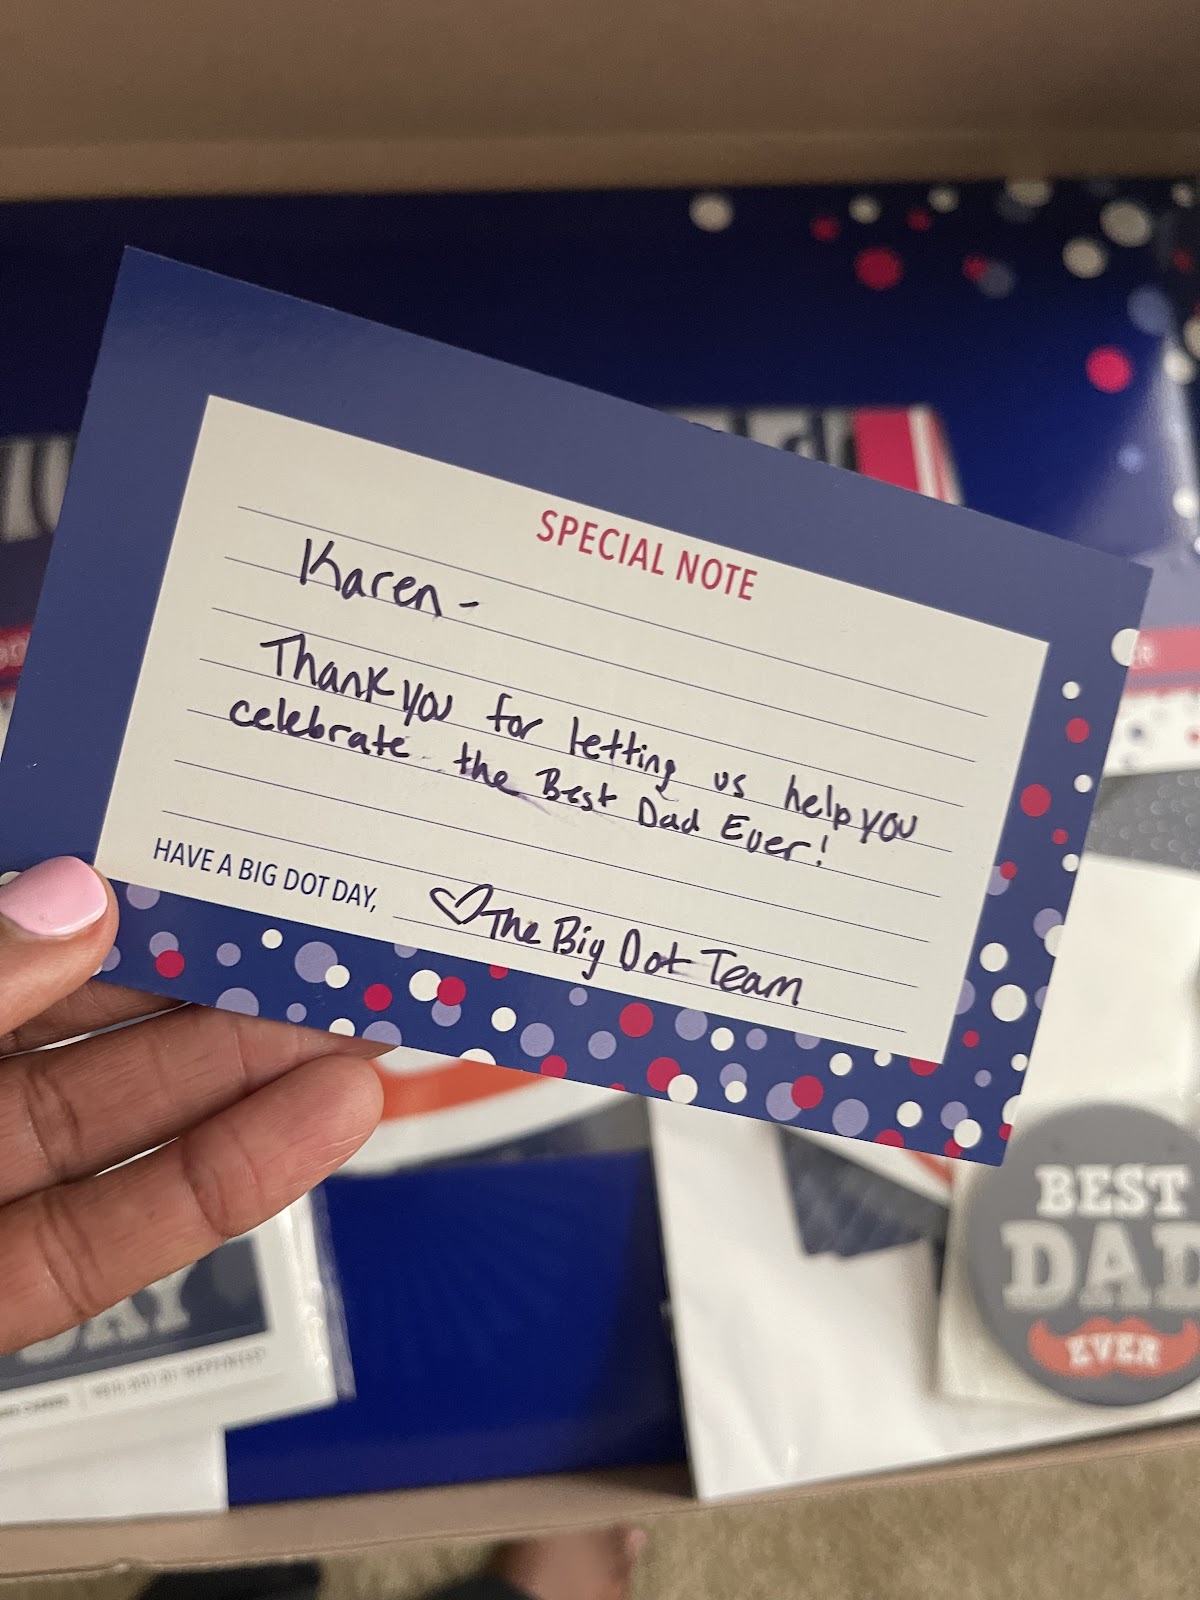 SPECIAL NOTE
Karen -
Thank you for letting us help you
celebrate the Best Dad Ever!
HAVE A BIG DOT DAY,
♡ The Big Dot Team
BEST
DAD
EVER
DAY